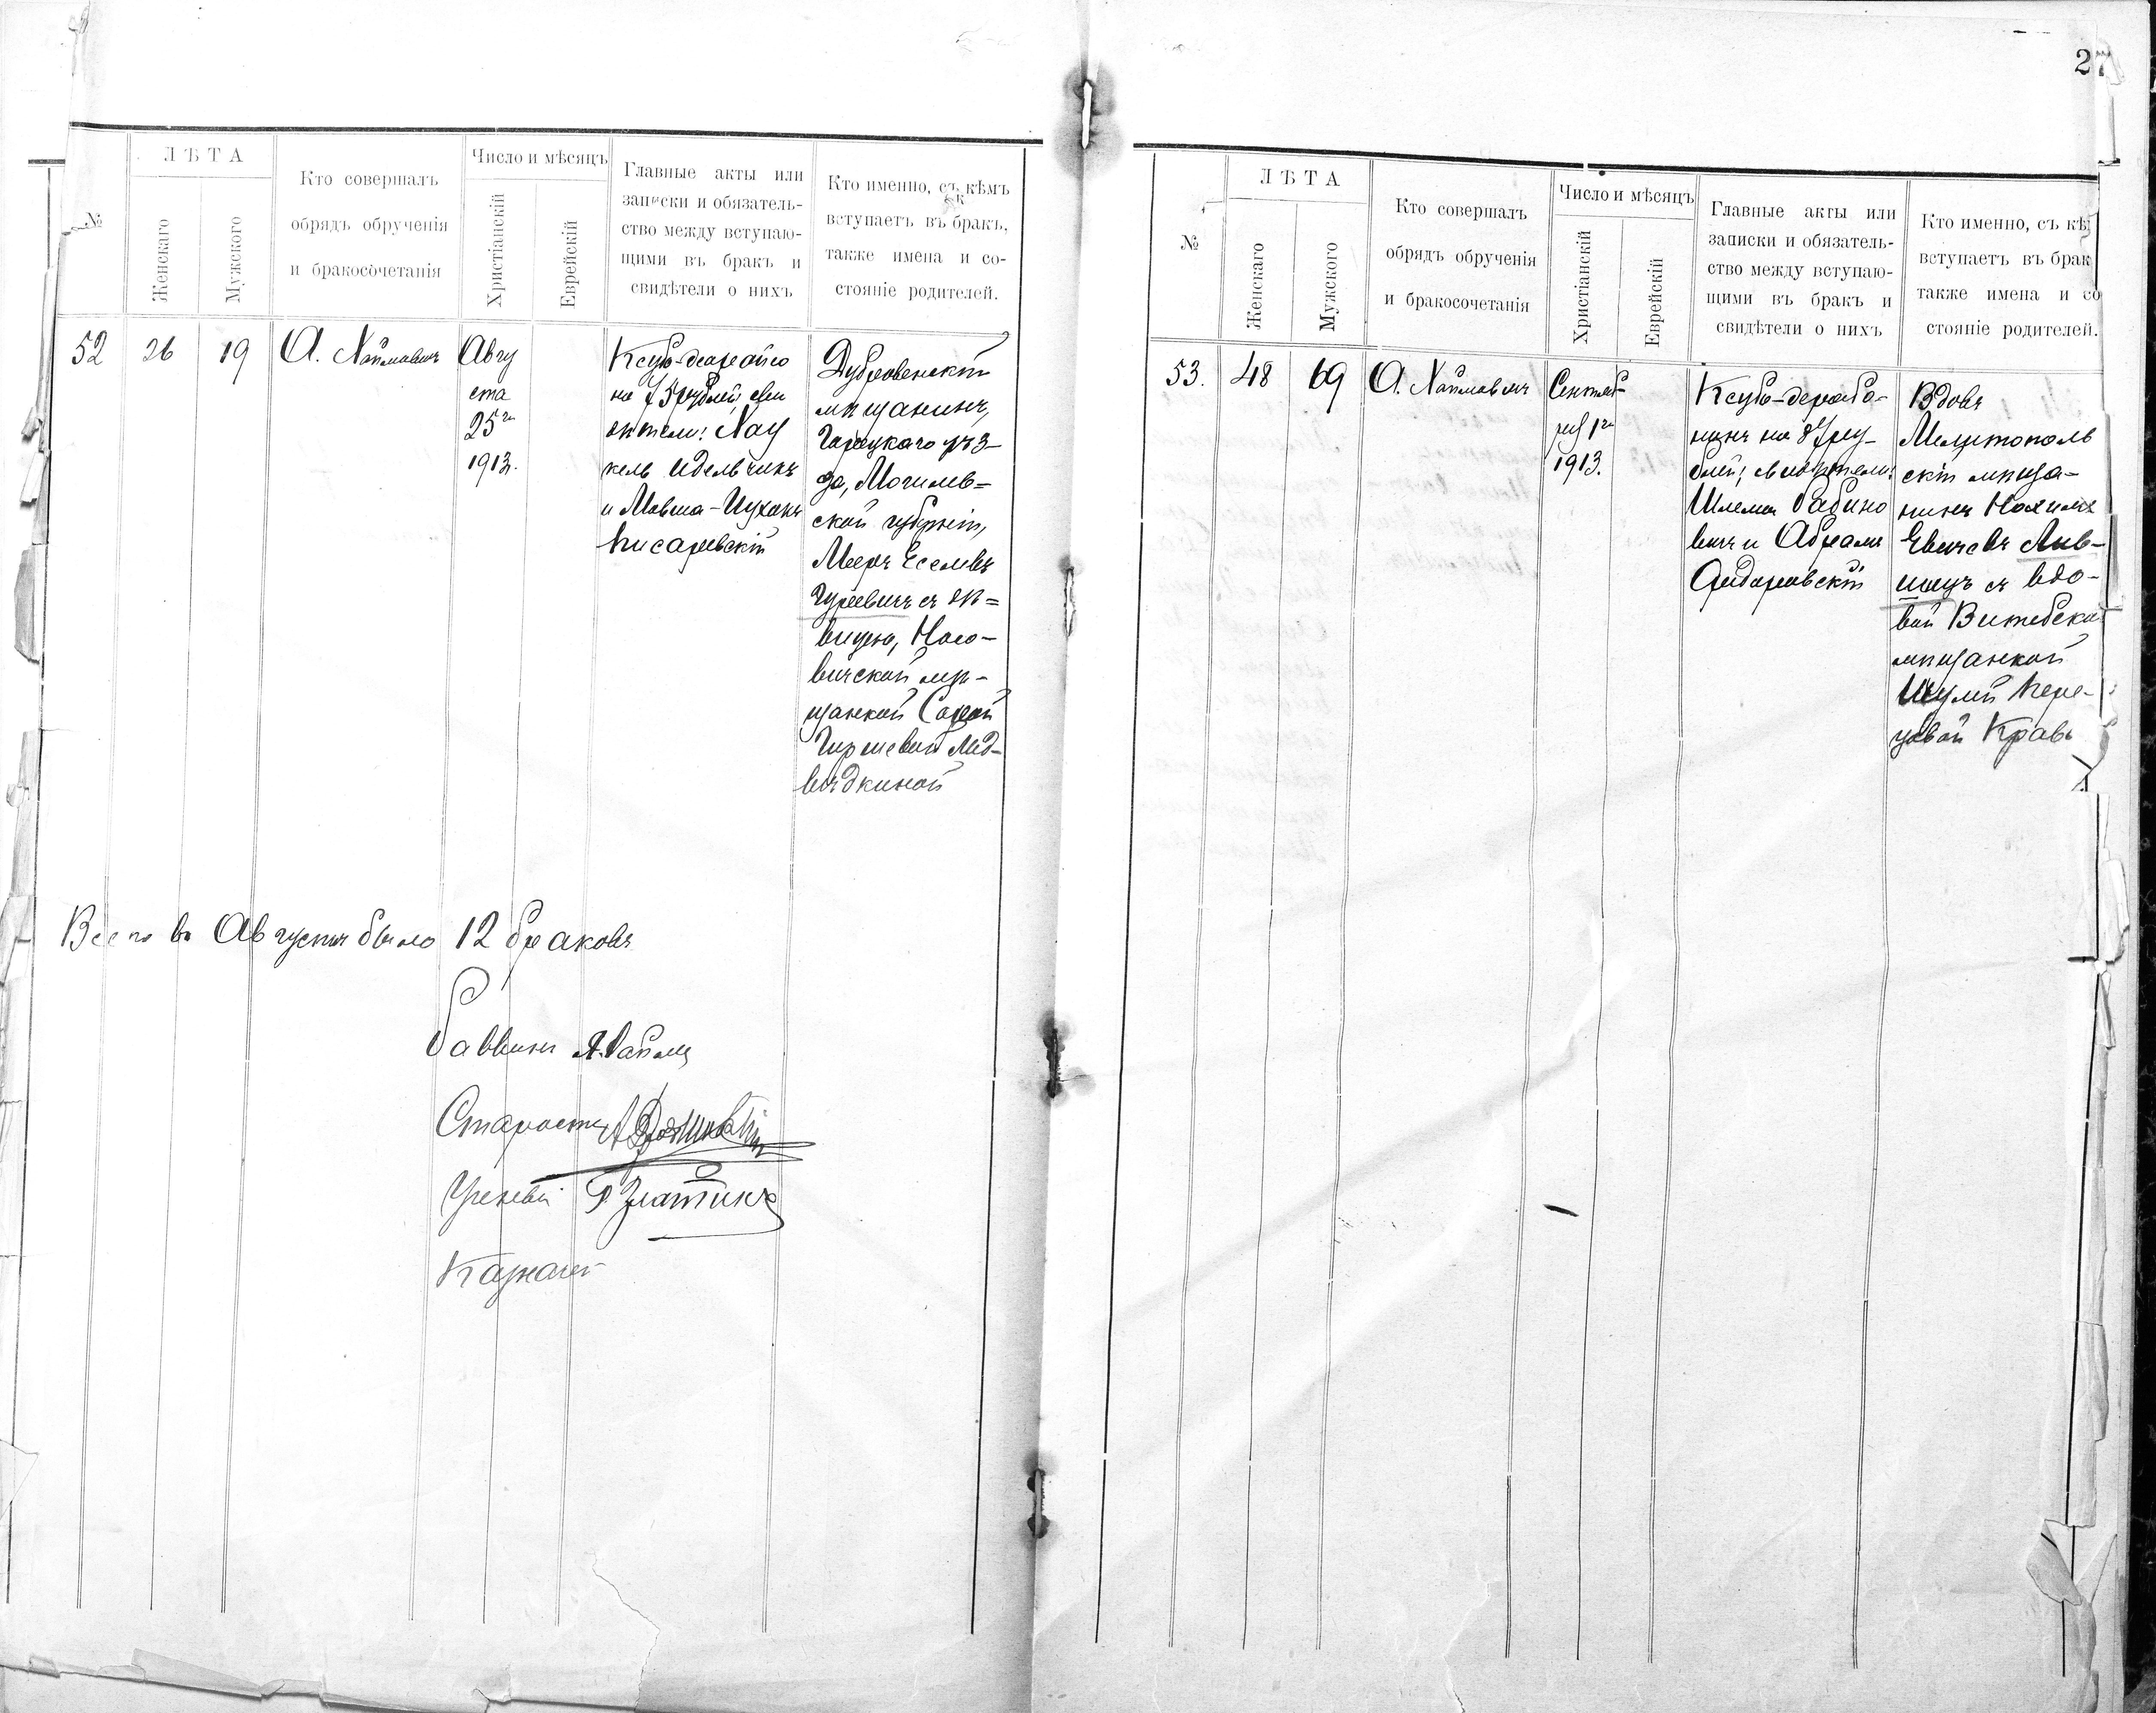 27
№
ЛѢТА
Женскаго
Мужскаго
Кто совершалъ
обрядъ обрученія
и бракосочетанія
Число и мѣсяцъ
Христіанскій
Еврейскій
Главные акты или
записки и обязатель-
ство между вступаю-
щими въ бракъ и
свидѣтели о нихъ
Кто именно, съ кѣмъ
вступаетъ въ бракъ,
также имена и со-
стояніе родителей.
52
26
19
А.
Авгу
ста
25го
1913.
на 75 рублей; сви
дѣтели:
кель Идельчикъ
и Мовша-
Писаревскій
Дубровенскій
мѣщанинъ,
Горецкаго уѣз-
да, Могилев=
ской губерніи,
Мееръ Еселевъ
Гуревичъ съ дѣ=
вицею,
вичской мѣ-
щанкой Сорой
Гиршевой Мед-
вѣдкиной
Всего въ Августѣ было 12 браковъ
Раввинъ
Староста
Ученый Г Златинъ
Казначей
№
ЛѢТА
Женскаго
Мужскаго
Кто совершалъ
обрядъ обрученія
и бракосочетанія
Число и мѣсяцъ
Христіанскій
Еврейскій
Главные акты или
записки и обязатель-
ство между вступаю-
щими въ бракъ и
свидѣтели о нихъ
Кто именно, съ кѣ
вступаетъ въ брак
также имена и со
стояніе родителей.
53.
48
69
А.
Сентяб-
ря 1го
1913.
Ксубо-дерабо-
нонъ на 87 ру-
блей; свидѣтели:
Шлема Рабино
вичъ и Абрамъ
Вдовъ
Мелитополь
скій мѣща-
нинъ Нохимъ
съ вдо-
вой Витебско
мѣщанкой
Пере-
цовой Кравъ